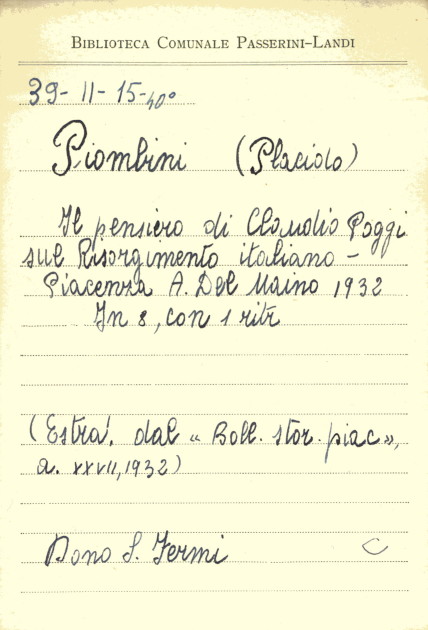 BIBLIOTECA COMUNALE PASSERINI-LANDI
39-11-15-40°
Piombini (Placido)
Il pensiero di Claudio Poggi
sul Risorgimento italiano -
Piacenza A. Del Maino 1932
In 8, con 1 ritr
(Estra. dal « Boll. stor. piac »,
a. XXVII, 1932)
Dono S. Fermi
C